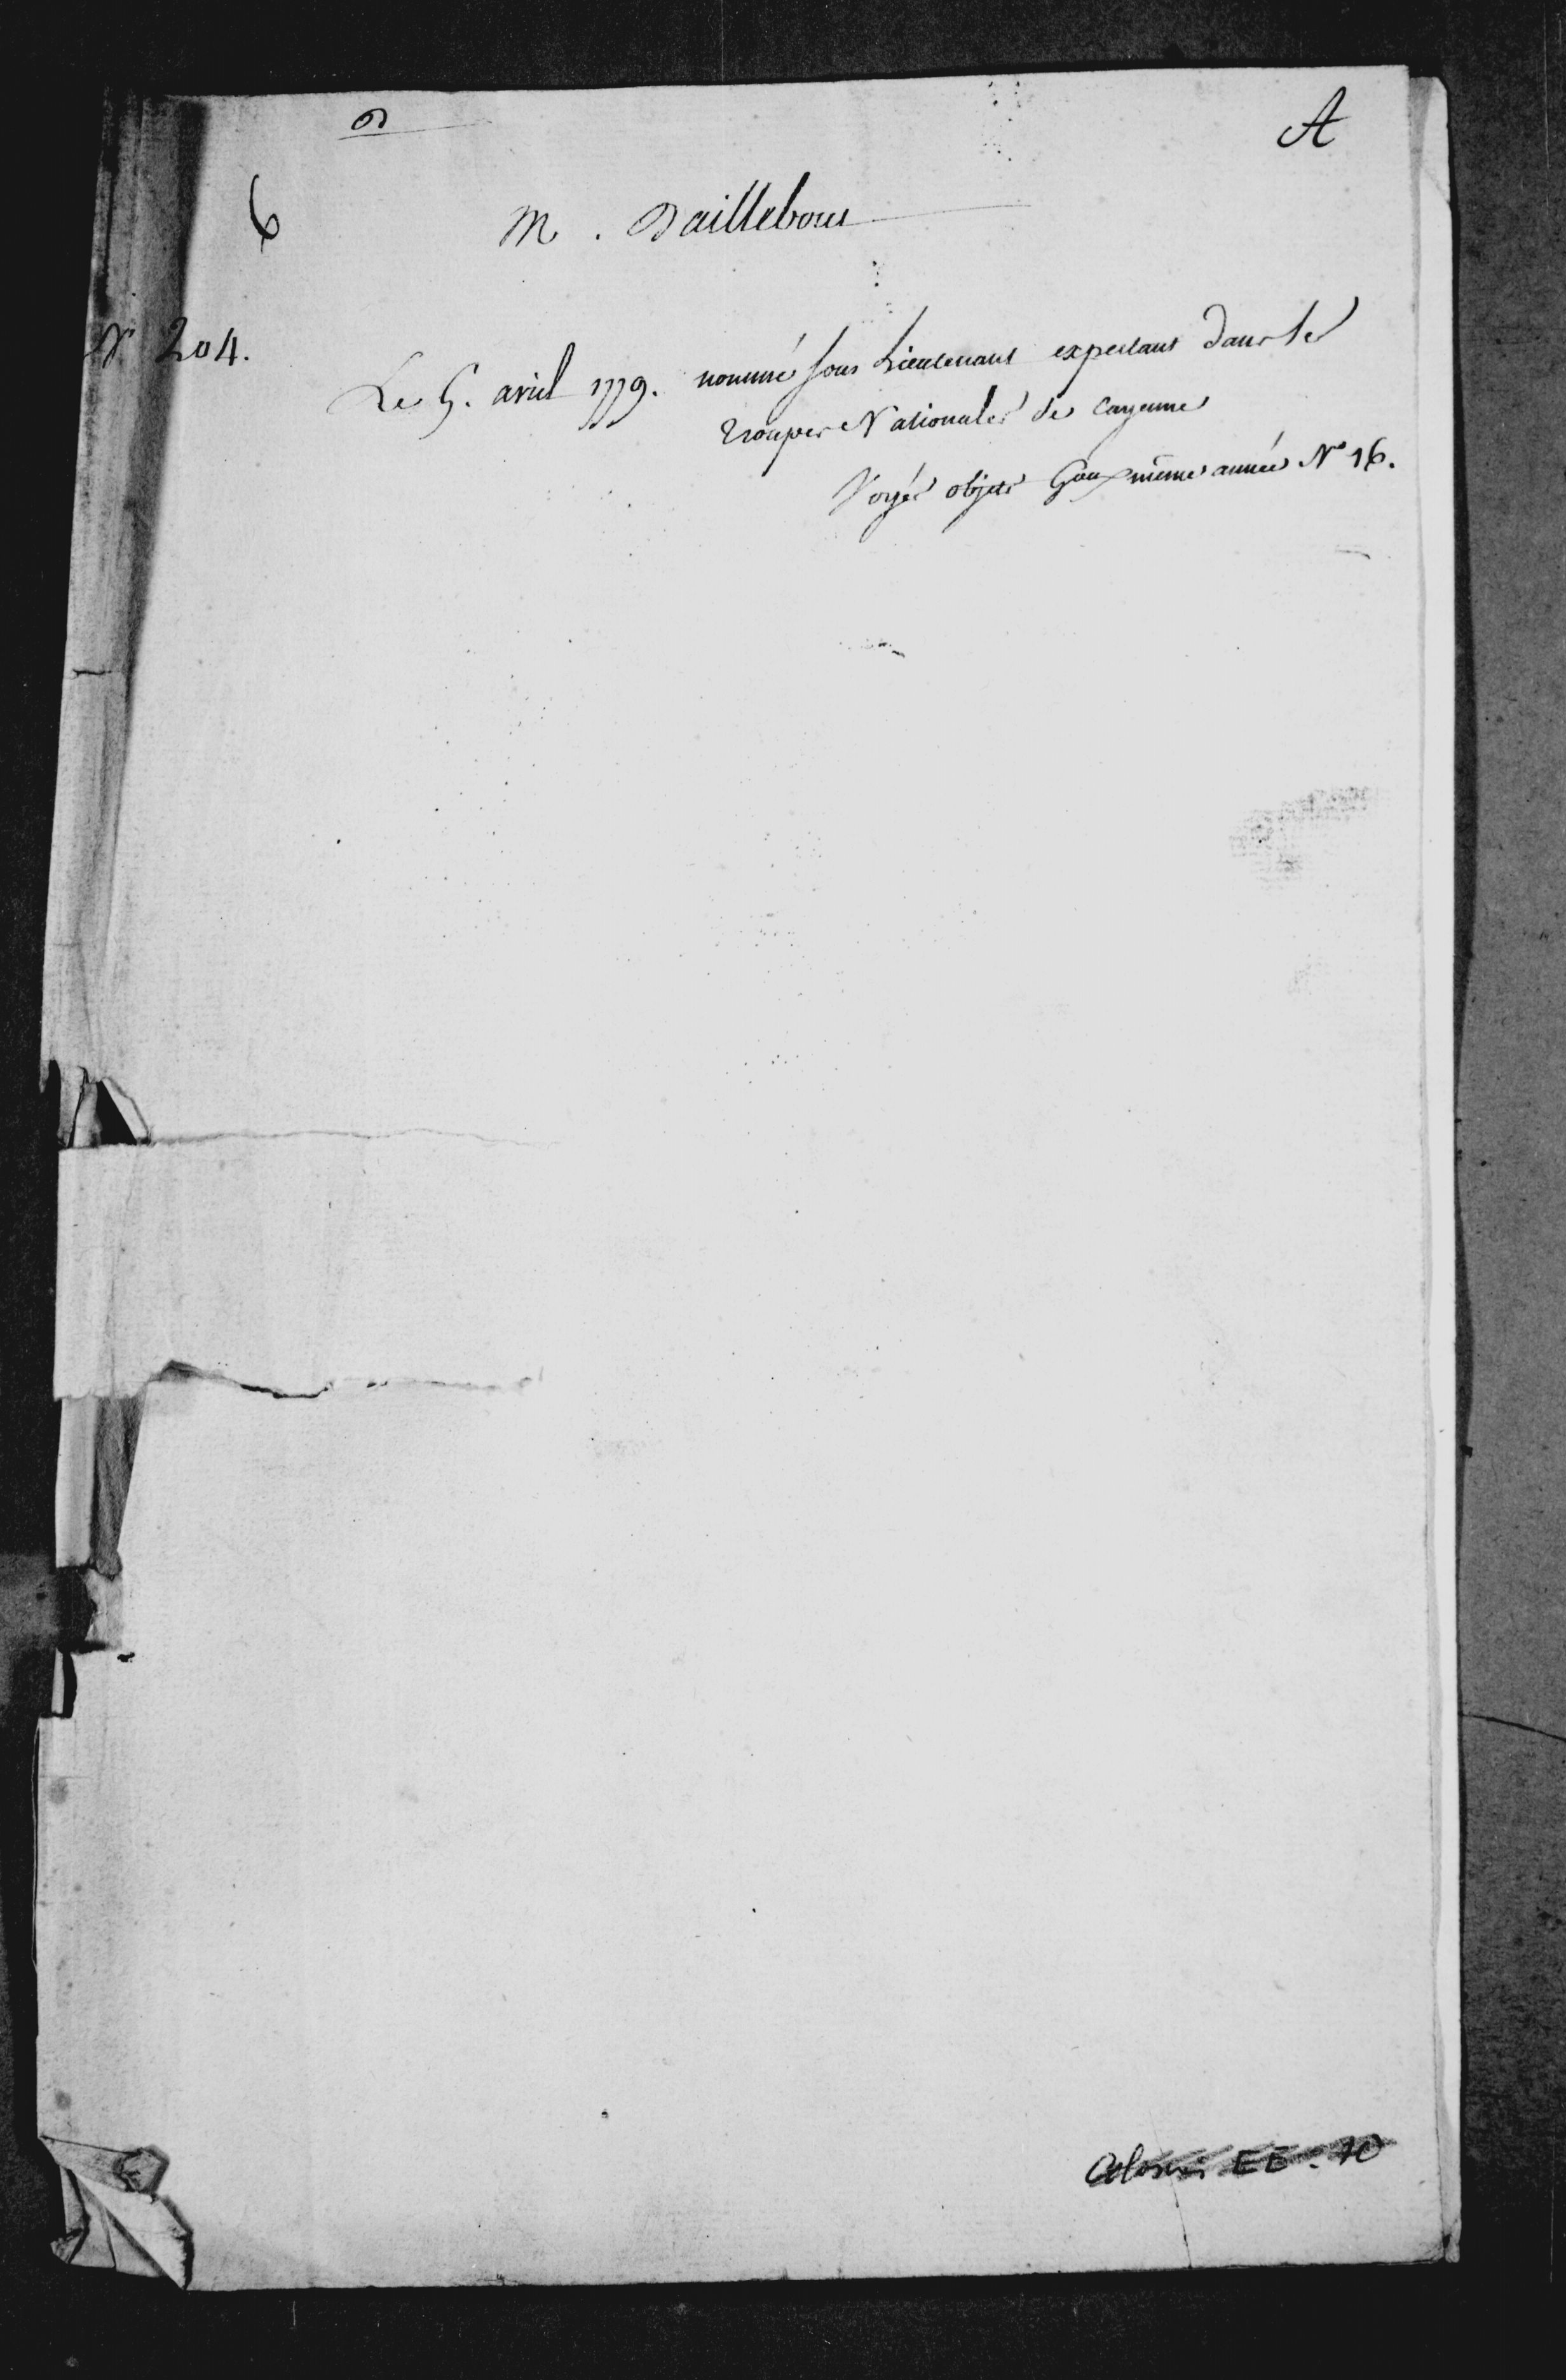 A
6
M. Dailleboust
N° 204.
Le 5. avril 1779. nommé sous Lieutenant expectant dans les
troupes Nationales de Cayenne
Voyés objets Gaux même année N° 16.
Colonies EE. 10